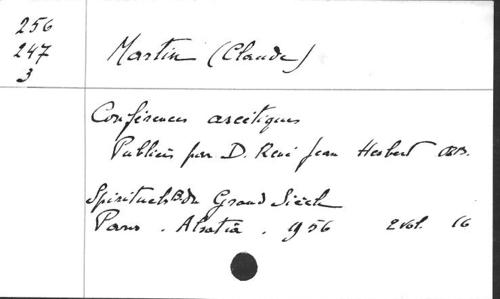 256
247
3
Martin (Claude)
Conférences ascétiques
Publiées par D. René Jean Hesbert OSB.
Spirituels du Grand Siècle
Paris. Alsatia. 1956 2 vol. 16